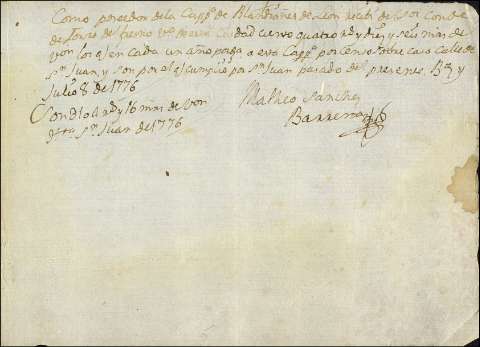 Como poseedor dela Capp.ª de Blas Yañes de Leon recibi del Sor Conde
de Torre del fresno Vº de esta Ciudad ciento quatro rs y diez y seis mrs de
Von los q.e en cada un año paga a esta Capp.ª por Censo sobre casa Calle de
Sn Juan, y son por el q.e cumplió por Sn Juan pasado del presente. B.z y
Julio 8 de 1776
Son 104 rs y 16 mrs de Von
Sn Juan de 1776
Matheo Sanchez
Barrena